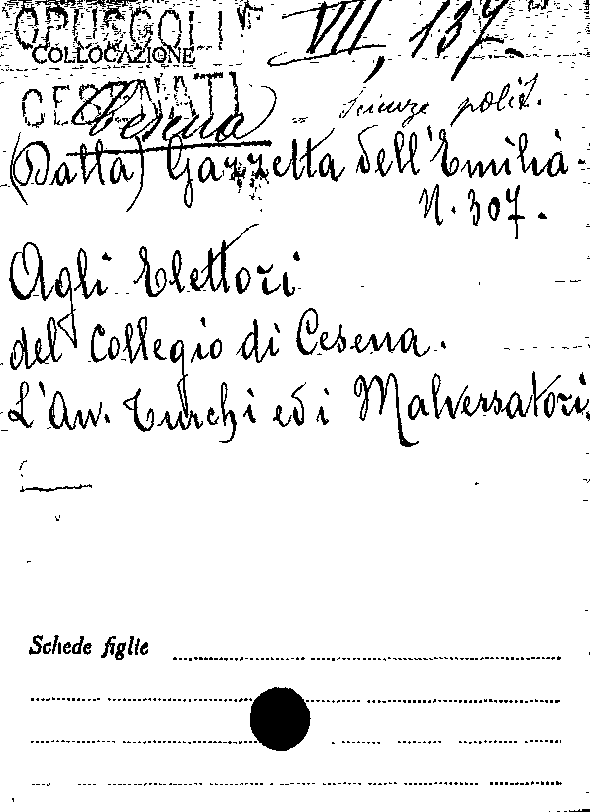 OPUSCOLI
VII, 137
COLLOCAZIONE
CESENATI
Cesena
Scienze polit.
(Dalla) Gazzetta dell'Emilia.
N. 307.
Agli Elettori
del Collegio di Cesena.
L'Avv. Turchi ed i Malversatori.
Schede figlie